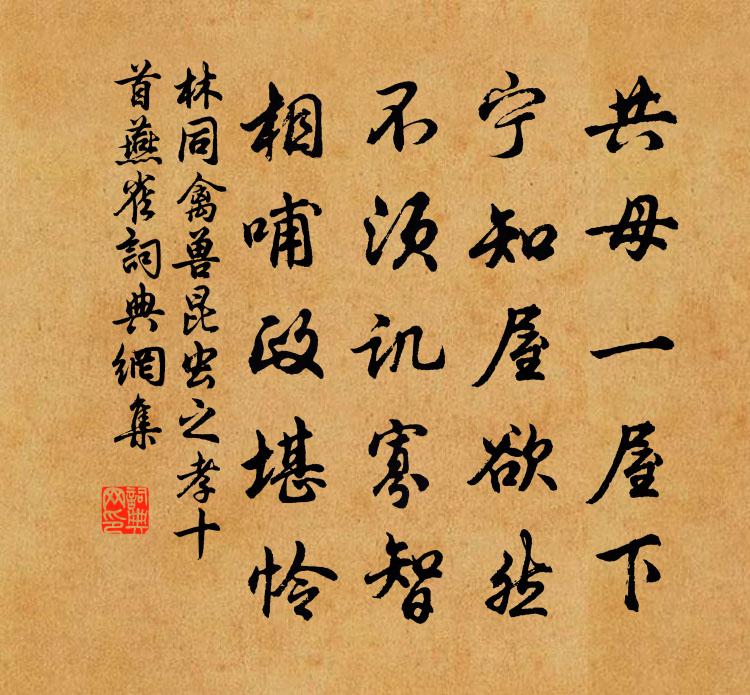 共母一屋下
宁知屋欲然
不须讥寡智
相哺政堪怜
林同禽兽昆虫之孝十
首燕雀詞典網集
詞典
网印